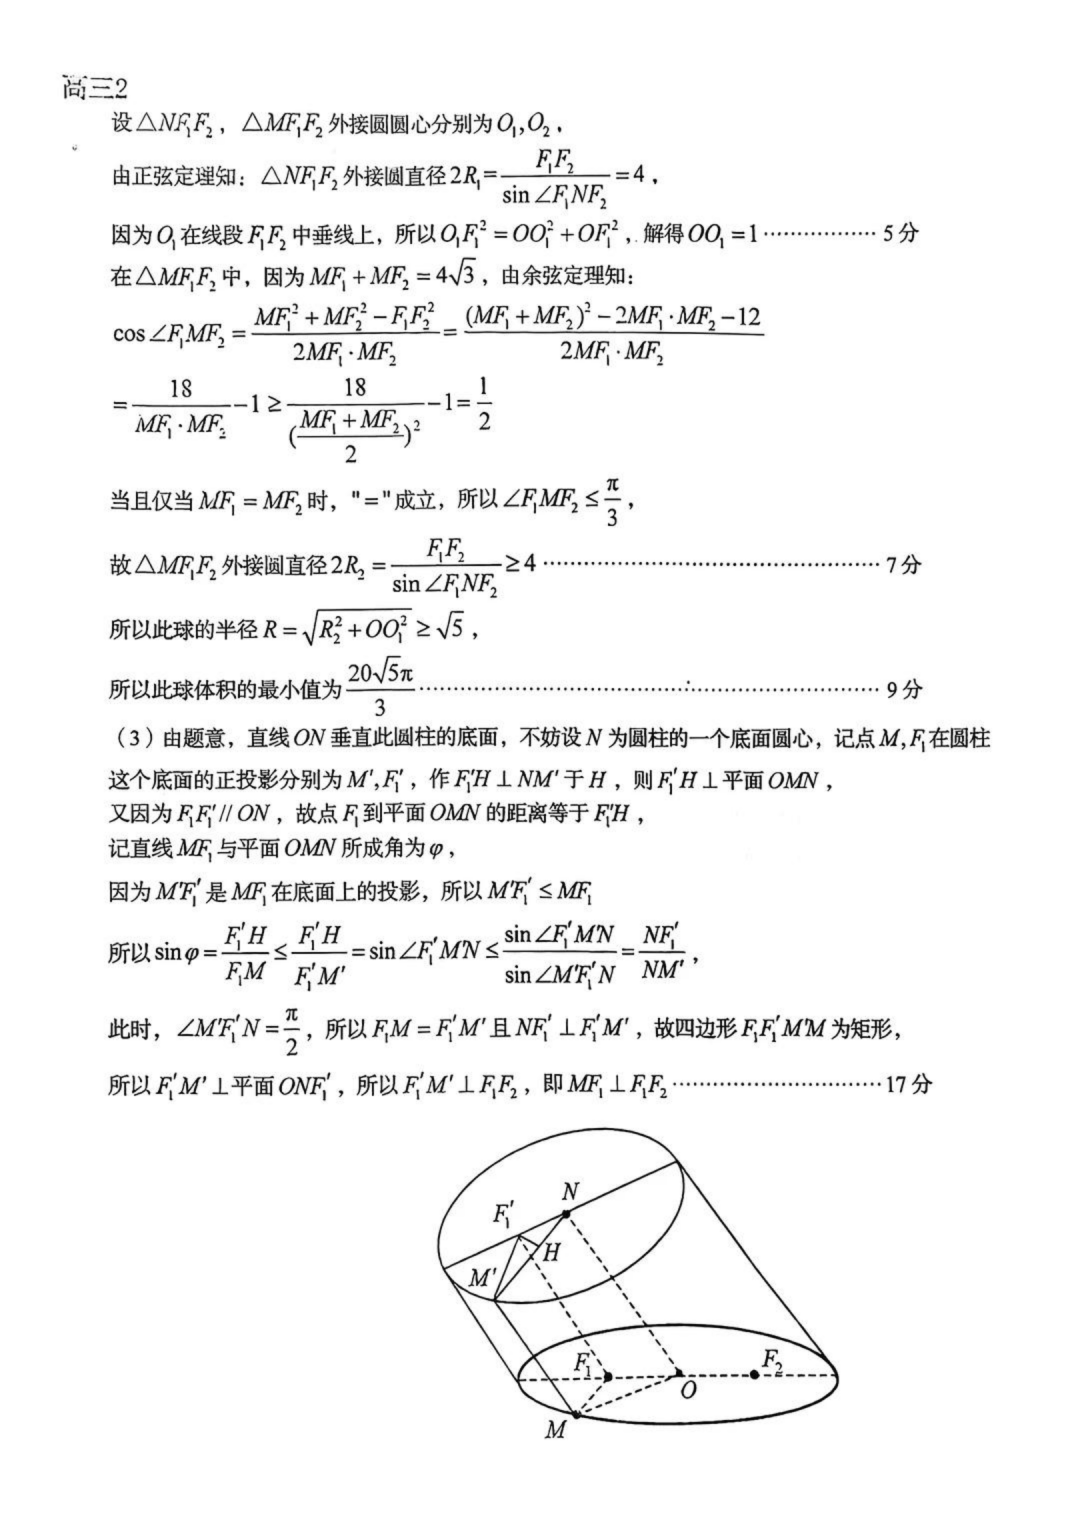 高三2
设△NF₁F₂，△MF₁F₂外接圆圆心分别为O₁,O₂.
由正弦定理知：△NF₁F₂外接圆直径2R₁=F₁F₂/sin∠F₁NF₂=4，
因为O₁在线段F₁F₂中垂线上，所以O₁F₁²=OO₁²+OF₁²，解得OO₁=1………………5分
在△MF₁F₂中，因为MF₁+MF₂=4√3，由余弦定理知：
cos∠F₁MF₂=(MF₁²+MF₂²−F₁F₂²)/(2MF₁·MF₂)=((MF₁+MF₂)²−2MF₁·MF₂−12)/(2MF₁·MF₂)
=18/(MF₁·MF₂)−1≥18/((MF₁+MF₂)/2)²−1=1/2
当且仅当MF₁=MF₂时，"="成立，所以∠F₁MF₂≤π/3，
故△MF₁F₂外接圆直径2R₂=F₁F₂/sin∠F₁NF₂≥4………………7分
所以此球的半径R=√(R₂²+OO₁²)≥√5，
所以此球体积的最小值为20√5π/3………………9分
（3）由题意，直线ON垂直此圆柱的底面，不妨设N为圆柱的一个底面圆心，记点M,F₁在圆柱
这个底面的正投影分别为M′,F₁′，作F₁′H⊥NM′于H，则F₁′H⊥平面OMN，
又因为F₁F₁′//ON，故点F₁到平面OMN的距离等于F₁′H，
记直线MF₁与平面OMN所成角为φ，
因为M′F₁′是MF₁在底面上的投影，所以M′F₁′≤MF₁
所以sinφ=F₁′H/F₁M≤F₁′H/F₁′M′=sin∠F₁′M′N≤sin∠F₁′M′N/sin∠M′F₁′N=NF₁′/NM′，
此时，∠M′F₁′N=π/2，所以F₁M=F₁′M′且NF₁′⊥F₁′M′，故四边形F₁F₁′M′M为矩形，
所以F₁′M′⊥平面ONF₁′，所以F₁′M′⊥F₁F₂，即MF₁⊥F₁F₂………………17分
N
F₁′
H
M′
F₁
F₂
O
M